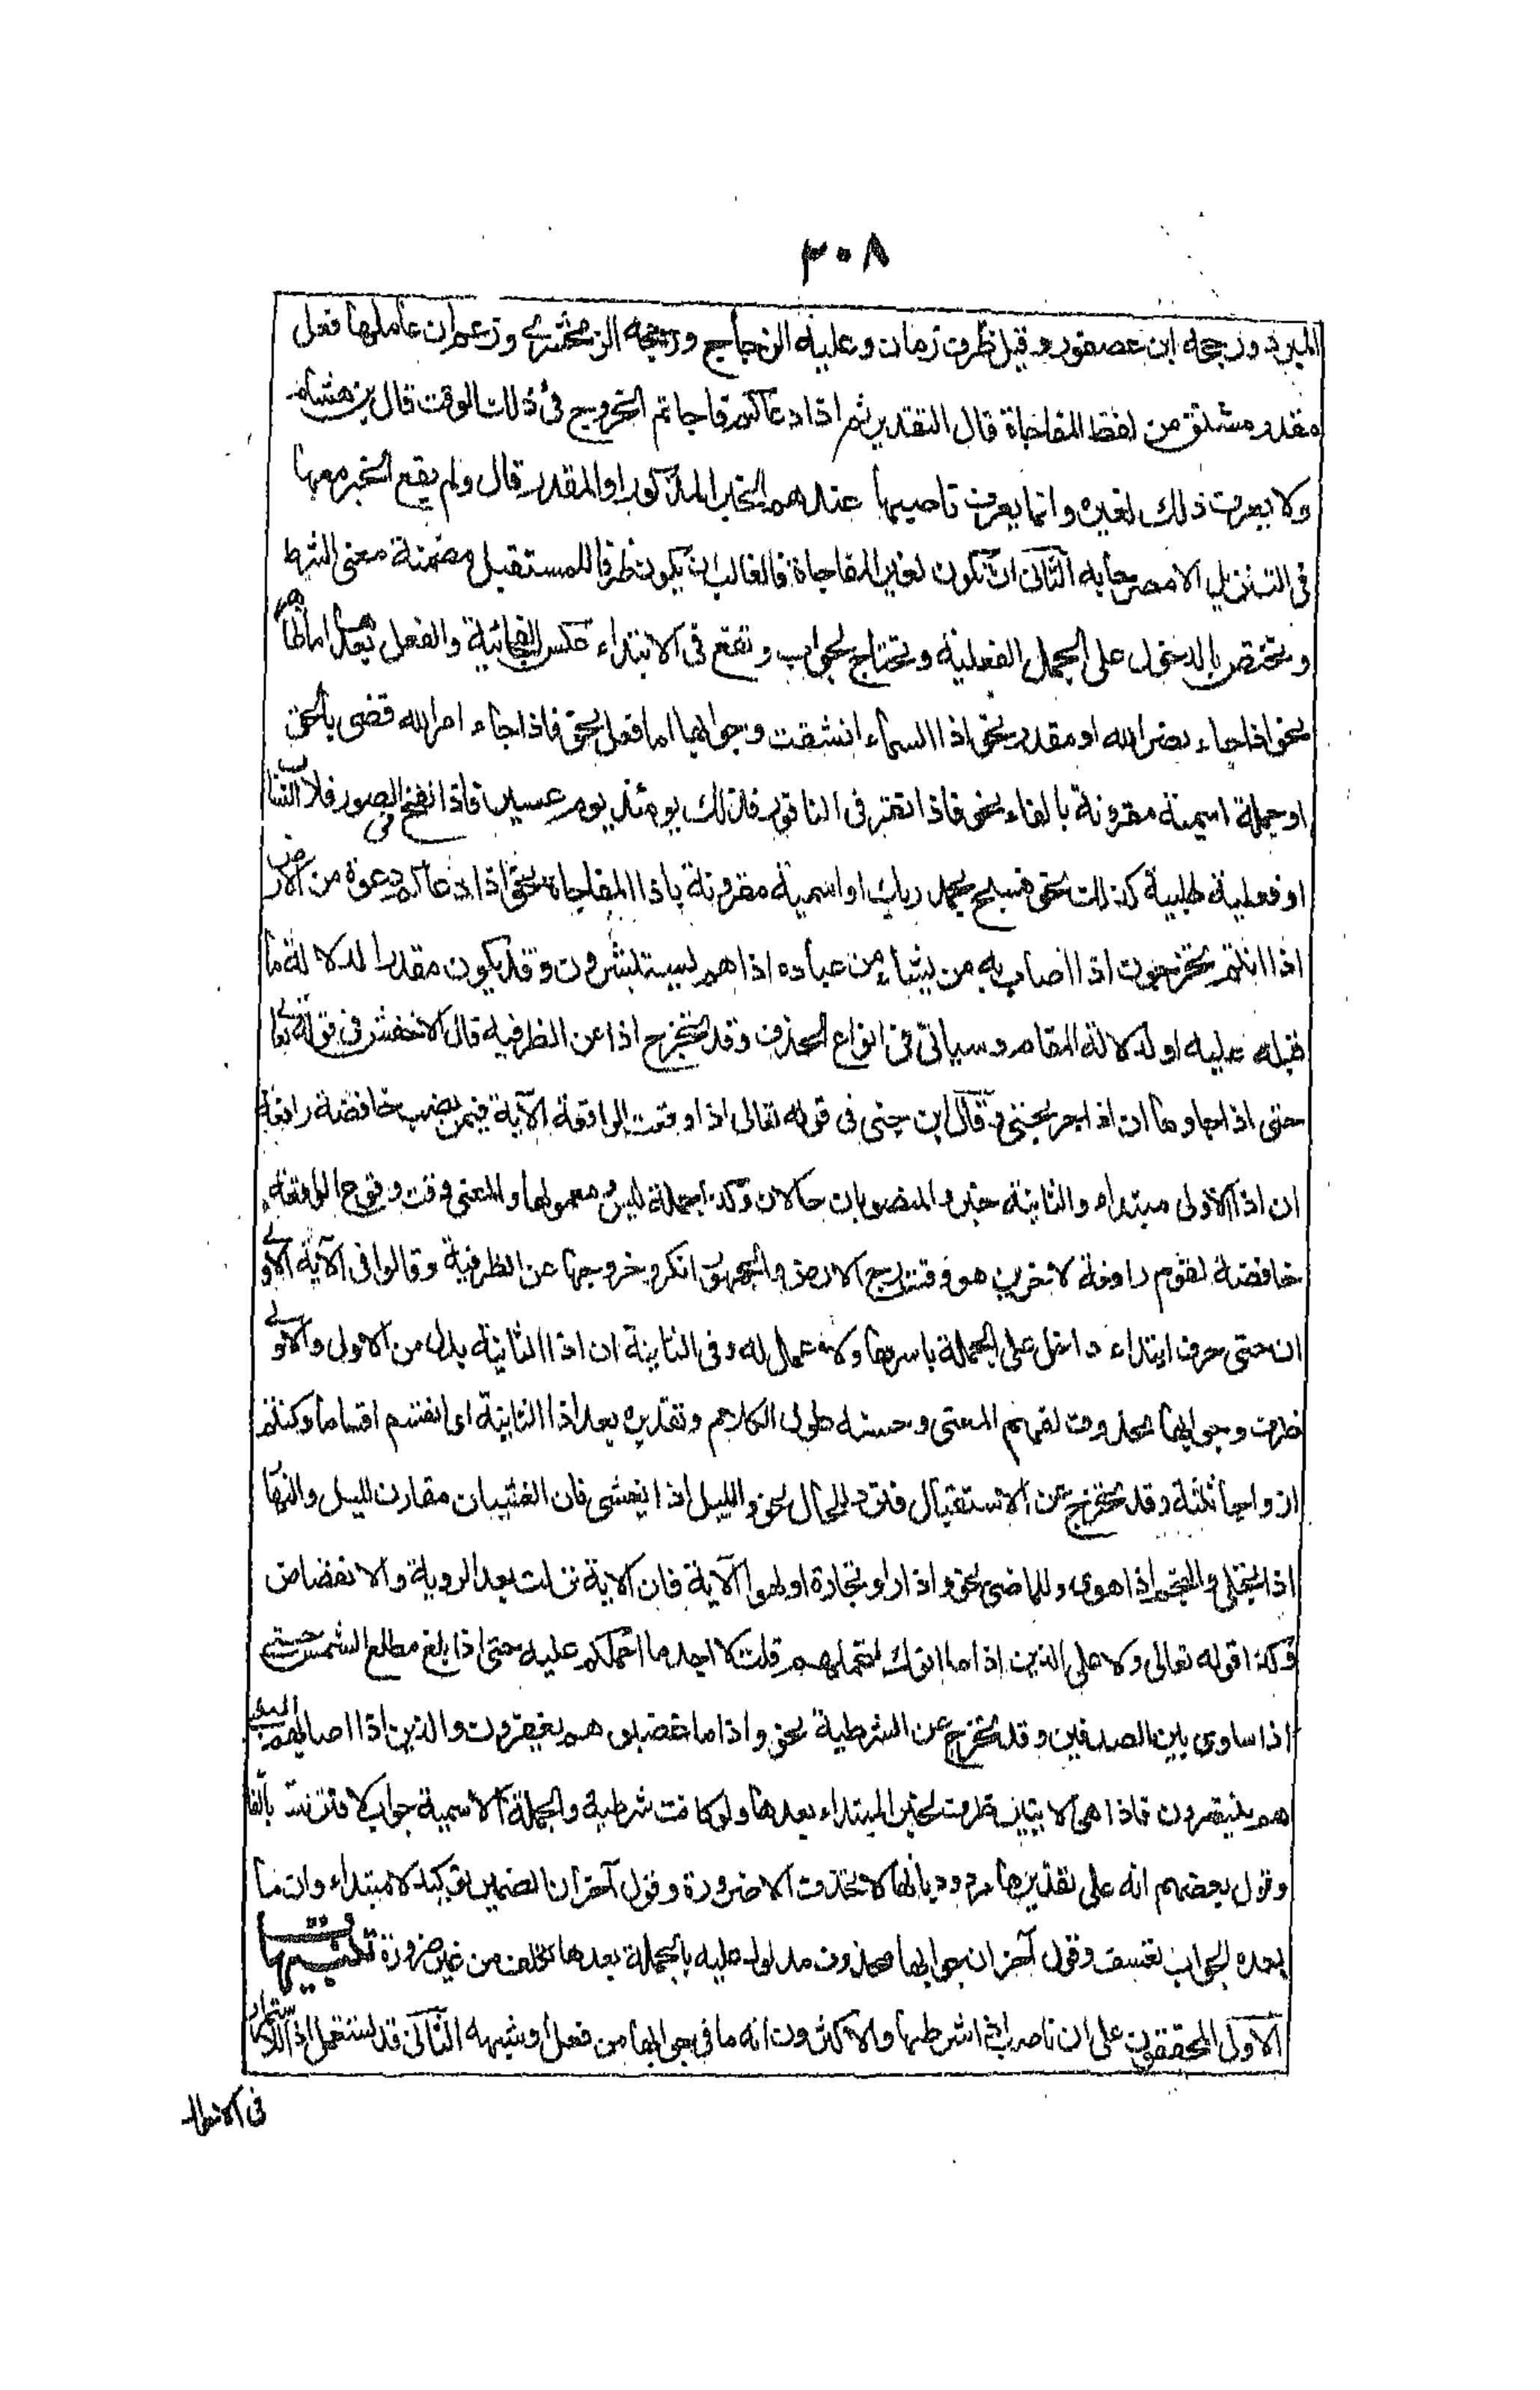 ٣٠٨
المبرد ورجحه ابن عصفور وقيل ظرف زمان وعليه الزجاج ورجحه الزمخشرے وزعم ان عاملها فعل
مقدر مشتق من لفظ المفاجاة قال التقدير ثم اذا دعاكم فاجاتم الخروج فى ذلك الوقت قال بن هشام
ولا يعرف ذلك لغيره وانما يعرف ناصبها عندهم الخبر المذكور او المقدر قال ولم يقع الخبر معها
فى التنزيل الا مصرحا به الثانى ان تكون لغير المفاجاة فالغالب ان يكون ظرفا للمستقبل مضمنة معنى الشرط
وتختص بالدخول على الجمل الفعلية وتحتاج لجواب وتقع فى الابتداء عكس الفجائية والفعل بعدها اما ظاهر
نحو اذا جاء نصر الله او مقدر نحو اذا السماء انشقت وجوابها اما فعل نحو فاذا جاء امر الله قضى بالحق
او جملة اسمية مقرونة بالفاء نحو فاذا نقر فى الناقور فذلك يومئذ يوم عسير فاذا نفخ فى الصور فلا انساب
او فعلية طلبية كذلك نحو فسبح بحمد ربك او اسمية مقرونة باذا المفاجاة نحو اذا دعاكم دعوة من الارض
اذا انتم تخرجون اذا اصاب به من يشاء من عباده اذا هم يستبشرون وقد يكون مقدرا لدلالة ما
قبله عليه او لدلالة المقام وسياتى فى انواع الحذف وقد تخرج اذا عن الظرفية قال الاخفش فى قوله تعالى
حتى اذا جاوها ان اذا جر بحتى وقال ابن جنى فى قوله تعالى اذا وقعت الواقعة الآية فيمن نصب خافضة رافعة
ان اذا الاولى مبتداء والثانية خبر والمنصوبان حالان وكذا جملة ليس ومعمولها والمعنى وقت وقوع الواقعة
خافضة لقوم رافعة لاخرين هو وقت رج الارض والجمهور انكروا خروجها عن الظرفية وقالوا فى الآية الاولے
ان حتى حرف ابتداء داخل على الجملة باسرها ولا عمل له وفى الثانية ان اذا الثانية بدل من الاولى والاولے
ظرف وجوابها محذوف لفهم المعنى وحسنه طول الكلام وتقديره بعد اذا الثانية اى انقسمتم اقساما وكنتم
ازواجا ثلثة وقد تخرج عن الاستقبال فترد للحال نحو والليل اذا يغشى فان الغشيان مقارن لليل والنهار
اذا تجلى والنجم اذا هوى وللماضى نحو واذا راو تجارة او لهوا الآية فان الاية نزلت بعد الروية والانفضاض
وكذا قوله تعالى ولا على الذين اذا ما اتوك لتحملهم قلت لا اجد ما احملكم عليه حتى اذا بلغ مطلع الشمس حتى
اذا ساوى بين الصدفين وقد تخرج عن الشرطية نحو واذا ما غضبوا هم يغفرون والذين اذا اصابهم البغى
هم ينتصرون فاذا هى الايتين ظرف لخبر المبتداء بعدها ولو كانت شرطية والجملة الاسمية جواب لاقترنت بالفا
وقول بعضهم انه على تقديرها مردود بانها لا تحذف الا ضرورة وقول آخر ان الضمير توكيد لا مبتداء وان ما
بعده الجواب تعسف وقول آخر ان جوابها محذوف مدلول عليه بالجملة بعدها تكلف من غير ضرورة تنبيهات
الاول المحققون على ان ناصب اذا شرطها والاكثرون انه ما فى جوابها من فعل او شبهه الثانى قد يستعمل اذا للاستمرار
فى الاحوال